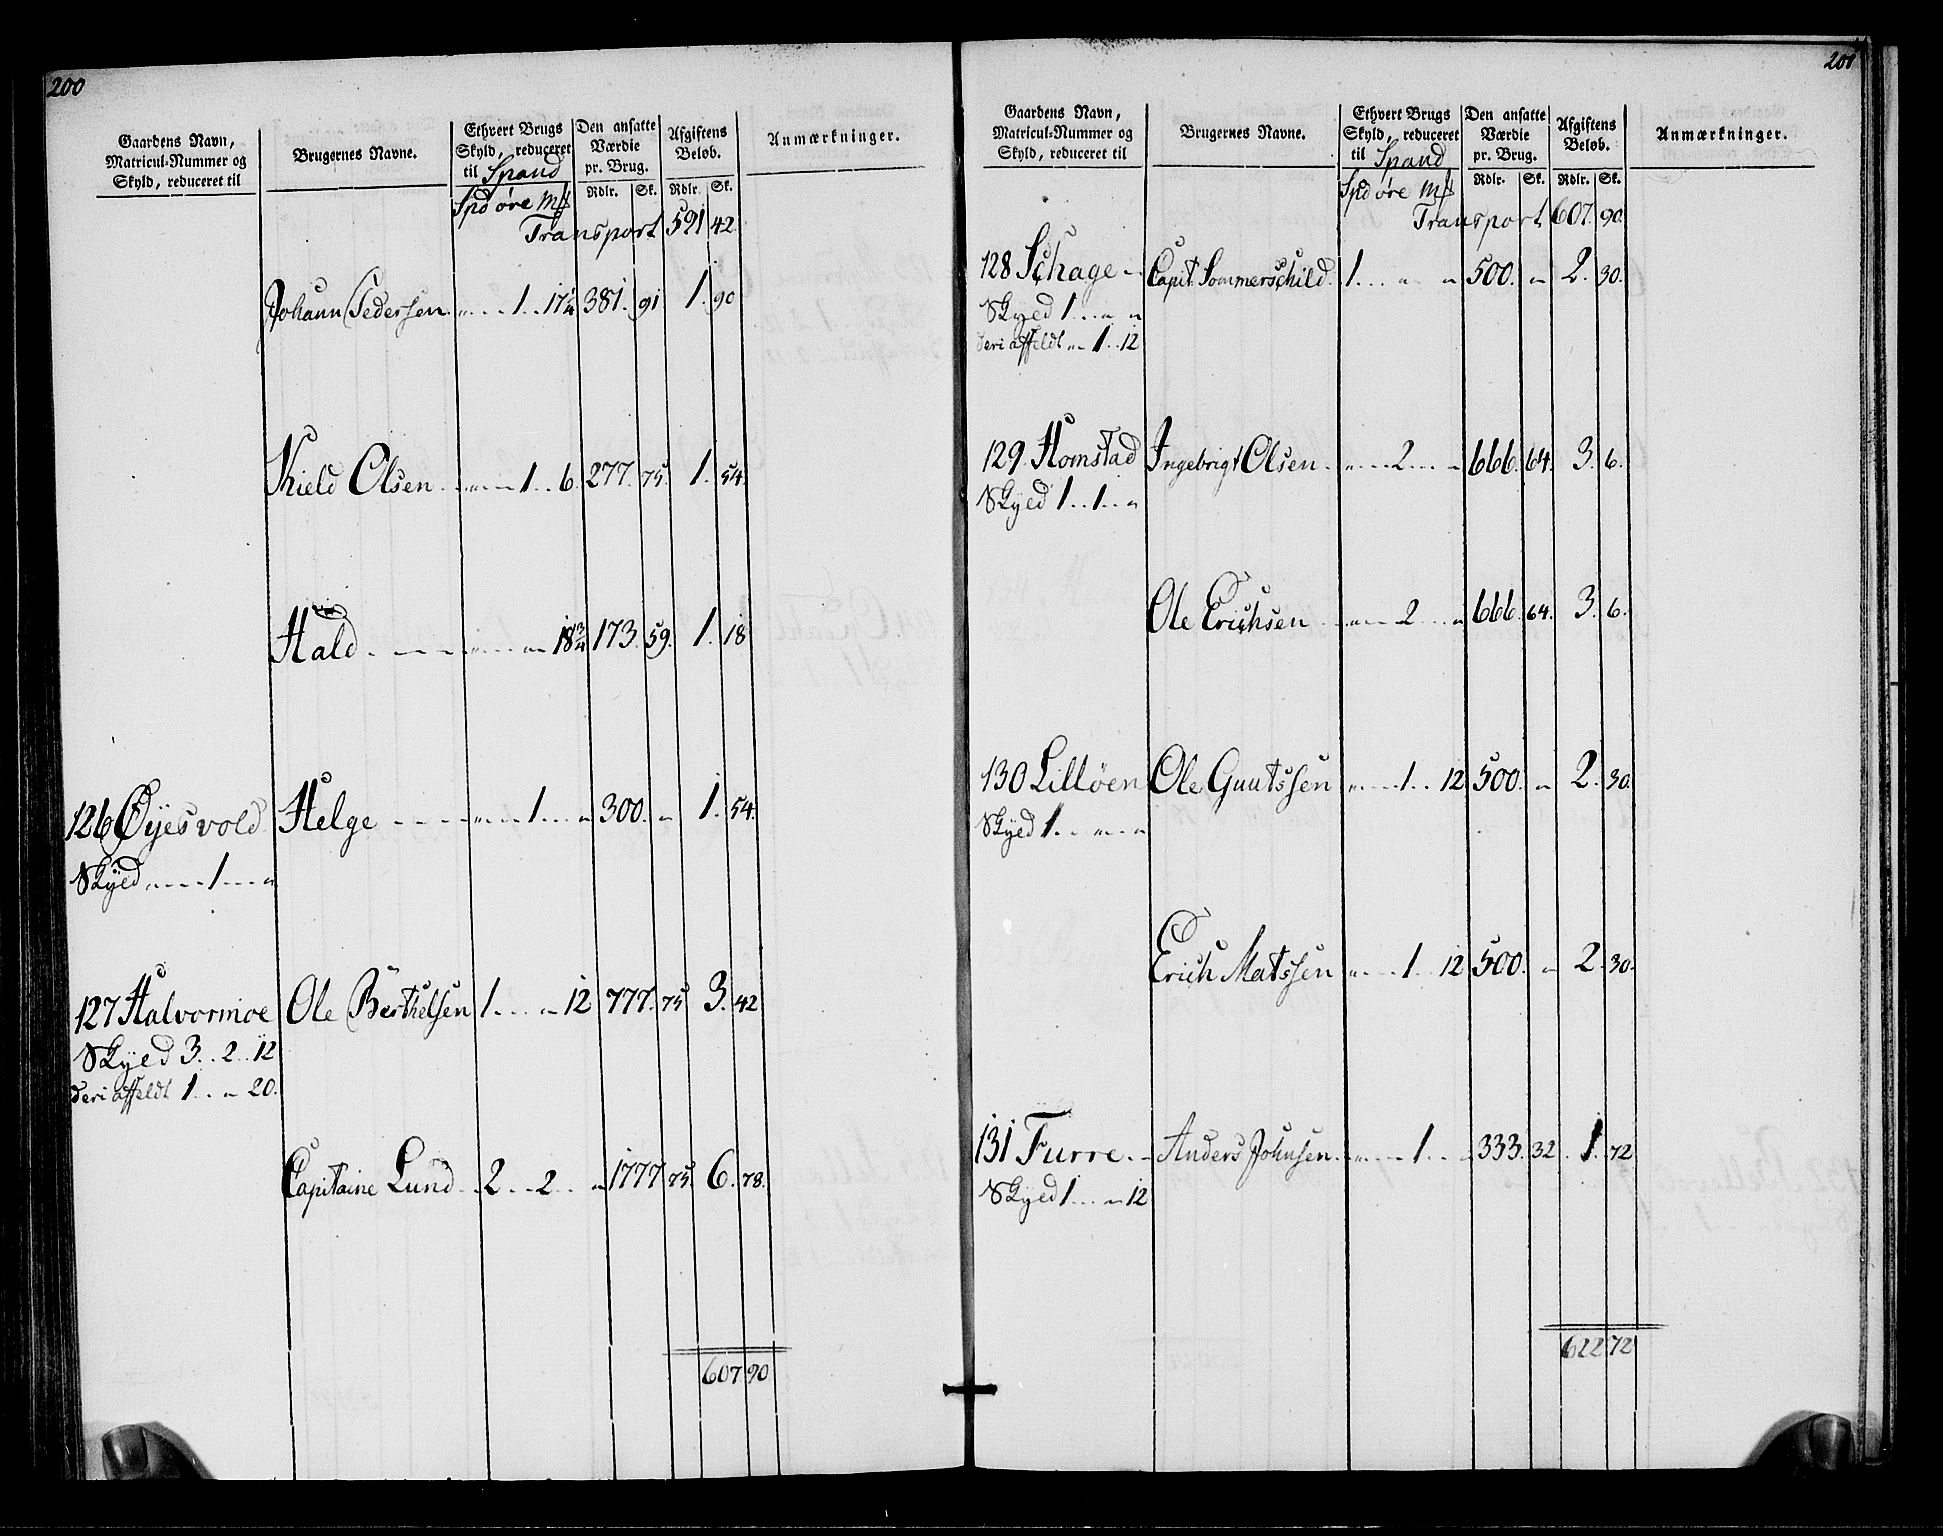 200
Gaardens Navn, Matricul-Nummer og Skyld, reduceret til
Brugernes Navne.
Ethvert Brugs Skyld, reduceret til Spand
Den ansatte Værdie pr. Brug.
Afgiftens Beløb.
Anmærkninger.
Rdlr. Sk. Rdlr. Sk.
Spd øre
Transport 591 42
Johann Pedersen 1 17¼ 381. 91 1. 90
Kield Olsen 1 6 277. 75. 1. 54.
Hald 173 59. 1. 18
126 Øyesvold Helge 1 " 300. " 1. 54.
Skyed 1 "
127 Halvormoe Ole Berthelsen 1 " 12 777. 75 3. 42
Skyed 3 2 12
deri affeldt 1 " 20.
Capitaine Lund 2 2 " 1777 75. 6. 78.
607 90
201
Gaardens Navn, Matricul-Nummer og Skyld, reduceret til
Brugernes Navne.
Ethvert Brugs Skyld, reduceret til Spand
Den ansatte Værdie pr. Brug.
Afgiftens Beløb.
Anmærkninger.
Rdlr. Sk. Rdlr. Sk.
Spd øre
Transport 607. 90
128 Schage Capit. Sommerschild. 1 " " 500. " 2. 30.
Skyed 1 " "
deri affeldt " 1 12
129. Homstad Ingebrigt Olsen " 2 " 666. 64. 3. 6.
Skyed 1 1 "
Ole Erichsen " 2 " 666. 64. 3. 6.
130 Lilløen Ole Guutssen " 1 12 500. " 2. 30.
Skyed 1 " "
Erich Matssen " 1 12 500. " 2. 30.
131 Furre Anders Johnsen " 1 " 333. 32. 1. 72
Skyed 1 " 12
622 72